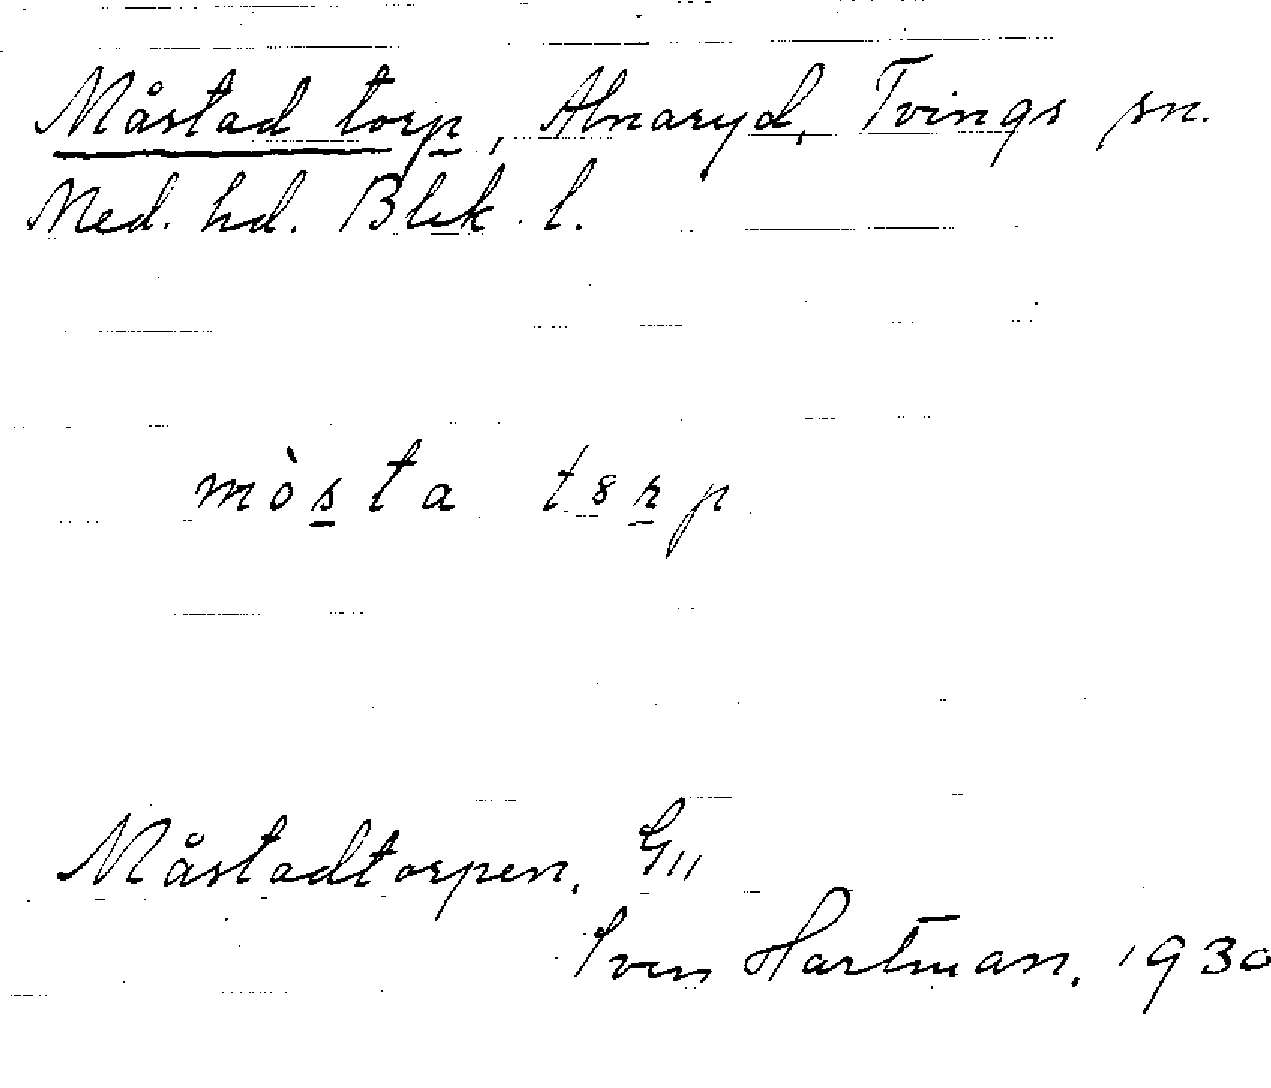 Måstad torp, Alnaryd, Tvings sn.
Med. hd. Blek. l.
mòsta t8rp
Måstadtorpen. G11
Sven Hartman. 1930